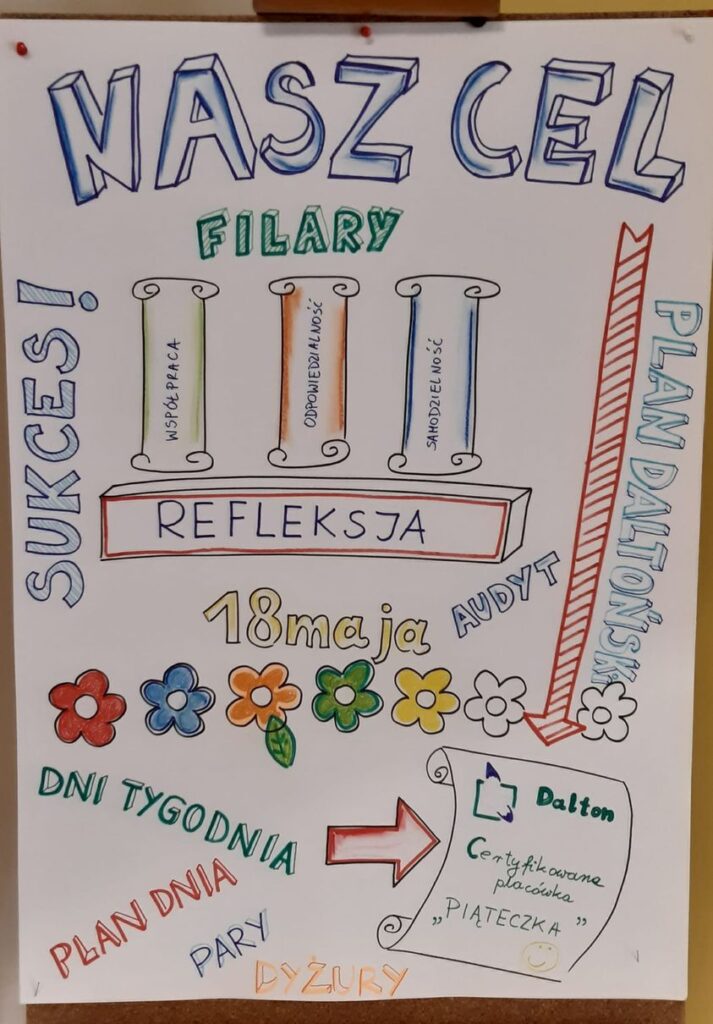 NASZ CEL
FILARY
SUKCES!
WSPÓŁPRACA
ODPOWIEDZIALNOŚĆ
SAMODZIELNOŚĆ
PLAN DALTOŃSKI
REFLEKSJA
18 maja
AUDYT
DNI TYGODNIA
PLAN DNIA
PARY
DYŻURY
Dalton
Certyfikowana
placówka
„PIĄTECZKA”